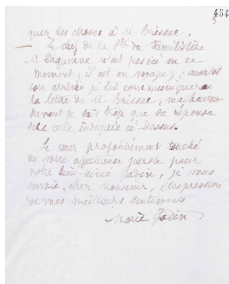 454
quer les choses à M. Brissac.
Le chef de la Sté du Familistère
M. Dequenne n'est pas ici en ce
moment; il est en voyage; aussitôt
son arrivée je lui communiquerai
la lettre de M. Brissac,
je sais que de réponse
celle indiquée ci-dessus.
Le cœur profondément touché
de votre parole pour
notre bien-aimé Godin, je vous
envoie, cher Monsieur, l'expression
de mes meilleurs sentiments
Marie Godin